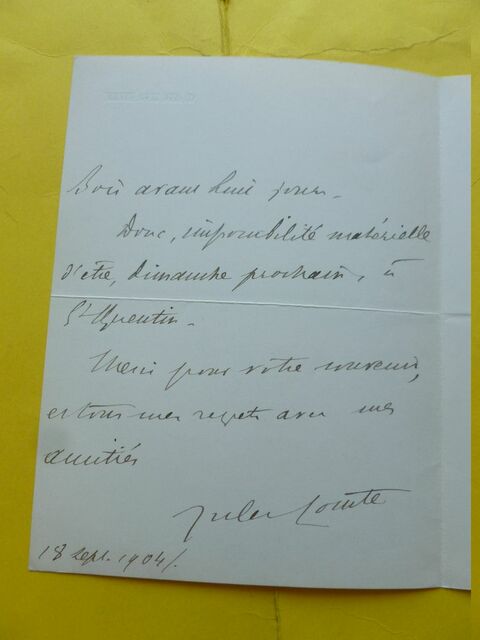 Bois avant huit jours.
Donc, impossibilité matérielle
d'être, dimanche prochain, à
St Quentin.
Merci pour votre
et tous mes regrets avec mes
amitiés
Jules Comte
18 sept. 1904/.